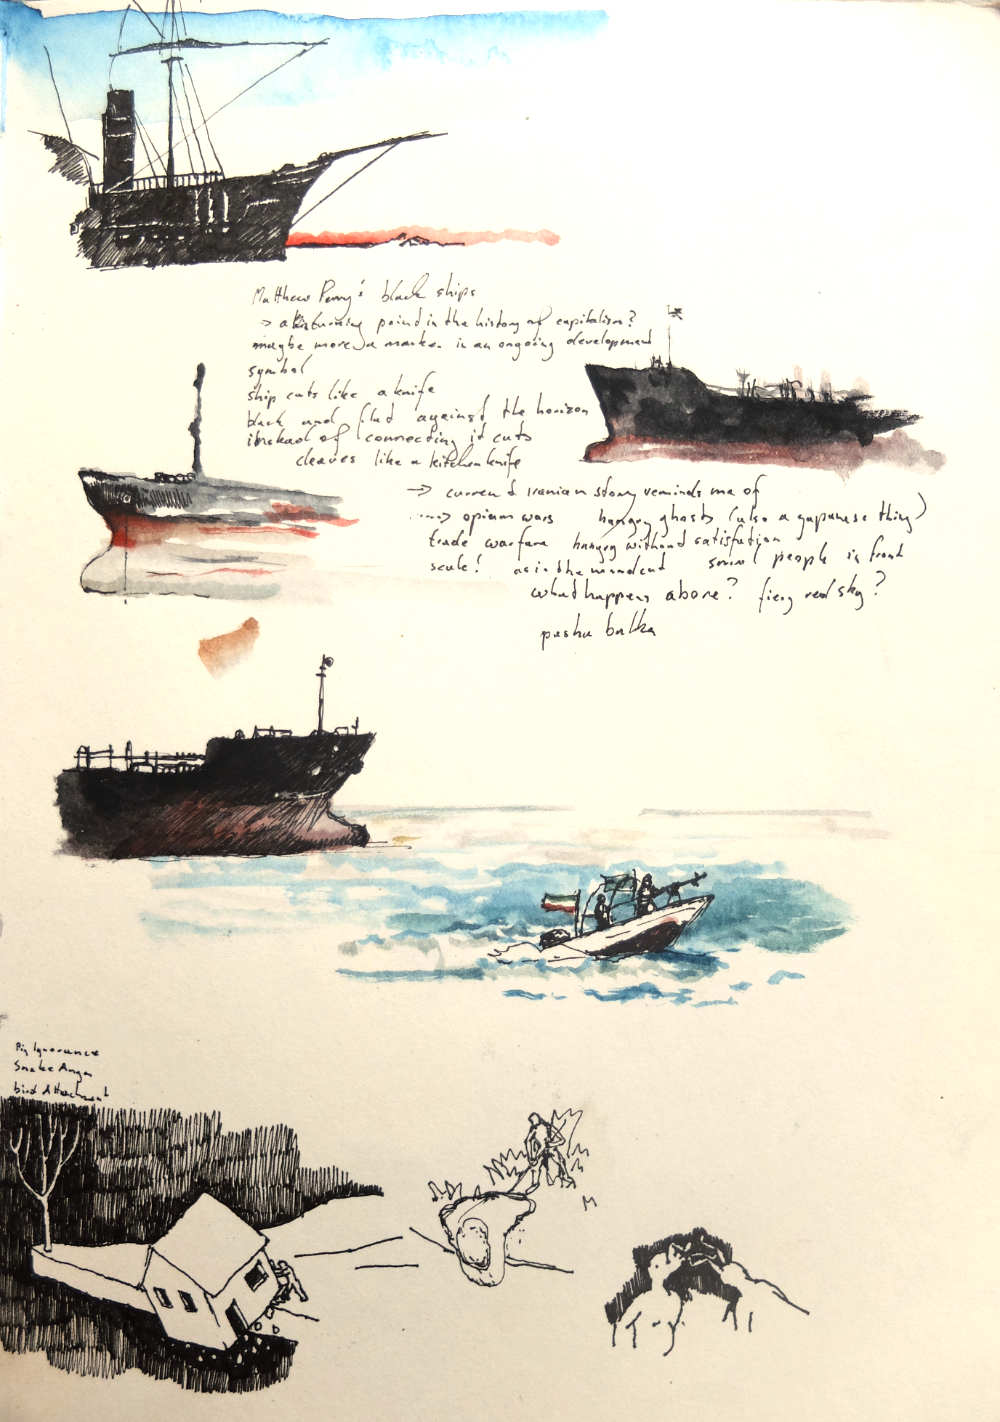 Matthew Perry's black ships
→ a turning point in the history of capitalism?
maybe more a marker in an ongoing development
symbol
ship cuts like a knife
black and flat against the horizon
instead of connecting it cuts
cleaves like a kitchen knife
→ current iranian story reminds me of
→ opium wars hungry ghosts (also a japanese thing)
trade warfare hungry without satisfaction
scale! as in the small people in front
what happens above? fiery red sky?
Pig Ignorance
Snake Anger
bird Attachment